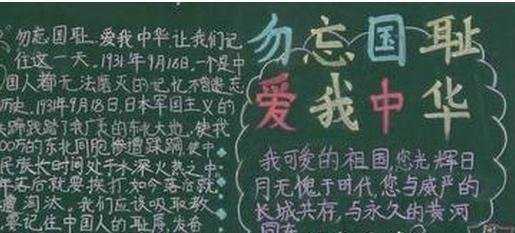 勿忘国耻
爱我中华
勿忘国耻、爱我中华让我们记
住这一天。1931年9月18日,一个是中
国人都无法磨灭的记忆不能遗忘
历史。1931年9月18日,日本军国主义的
蹄践踏了我广袤的东北大地,使我
00万的东北同胞惨遭蹂躏,使中
民族长时间处于水深火热之中
落后就要挨打如今落后就
遭淘汰。我们应该吸取教
要记住中国人的耻辱,发奋
我可爱的祖国您光辉日
月无愧于时代,您与威严的
长城共存,与永久的黄河
同在